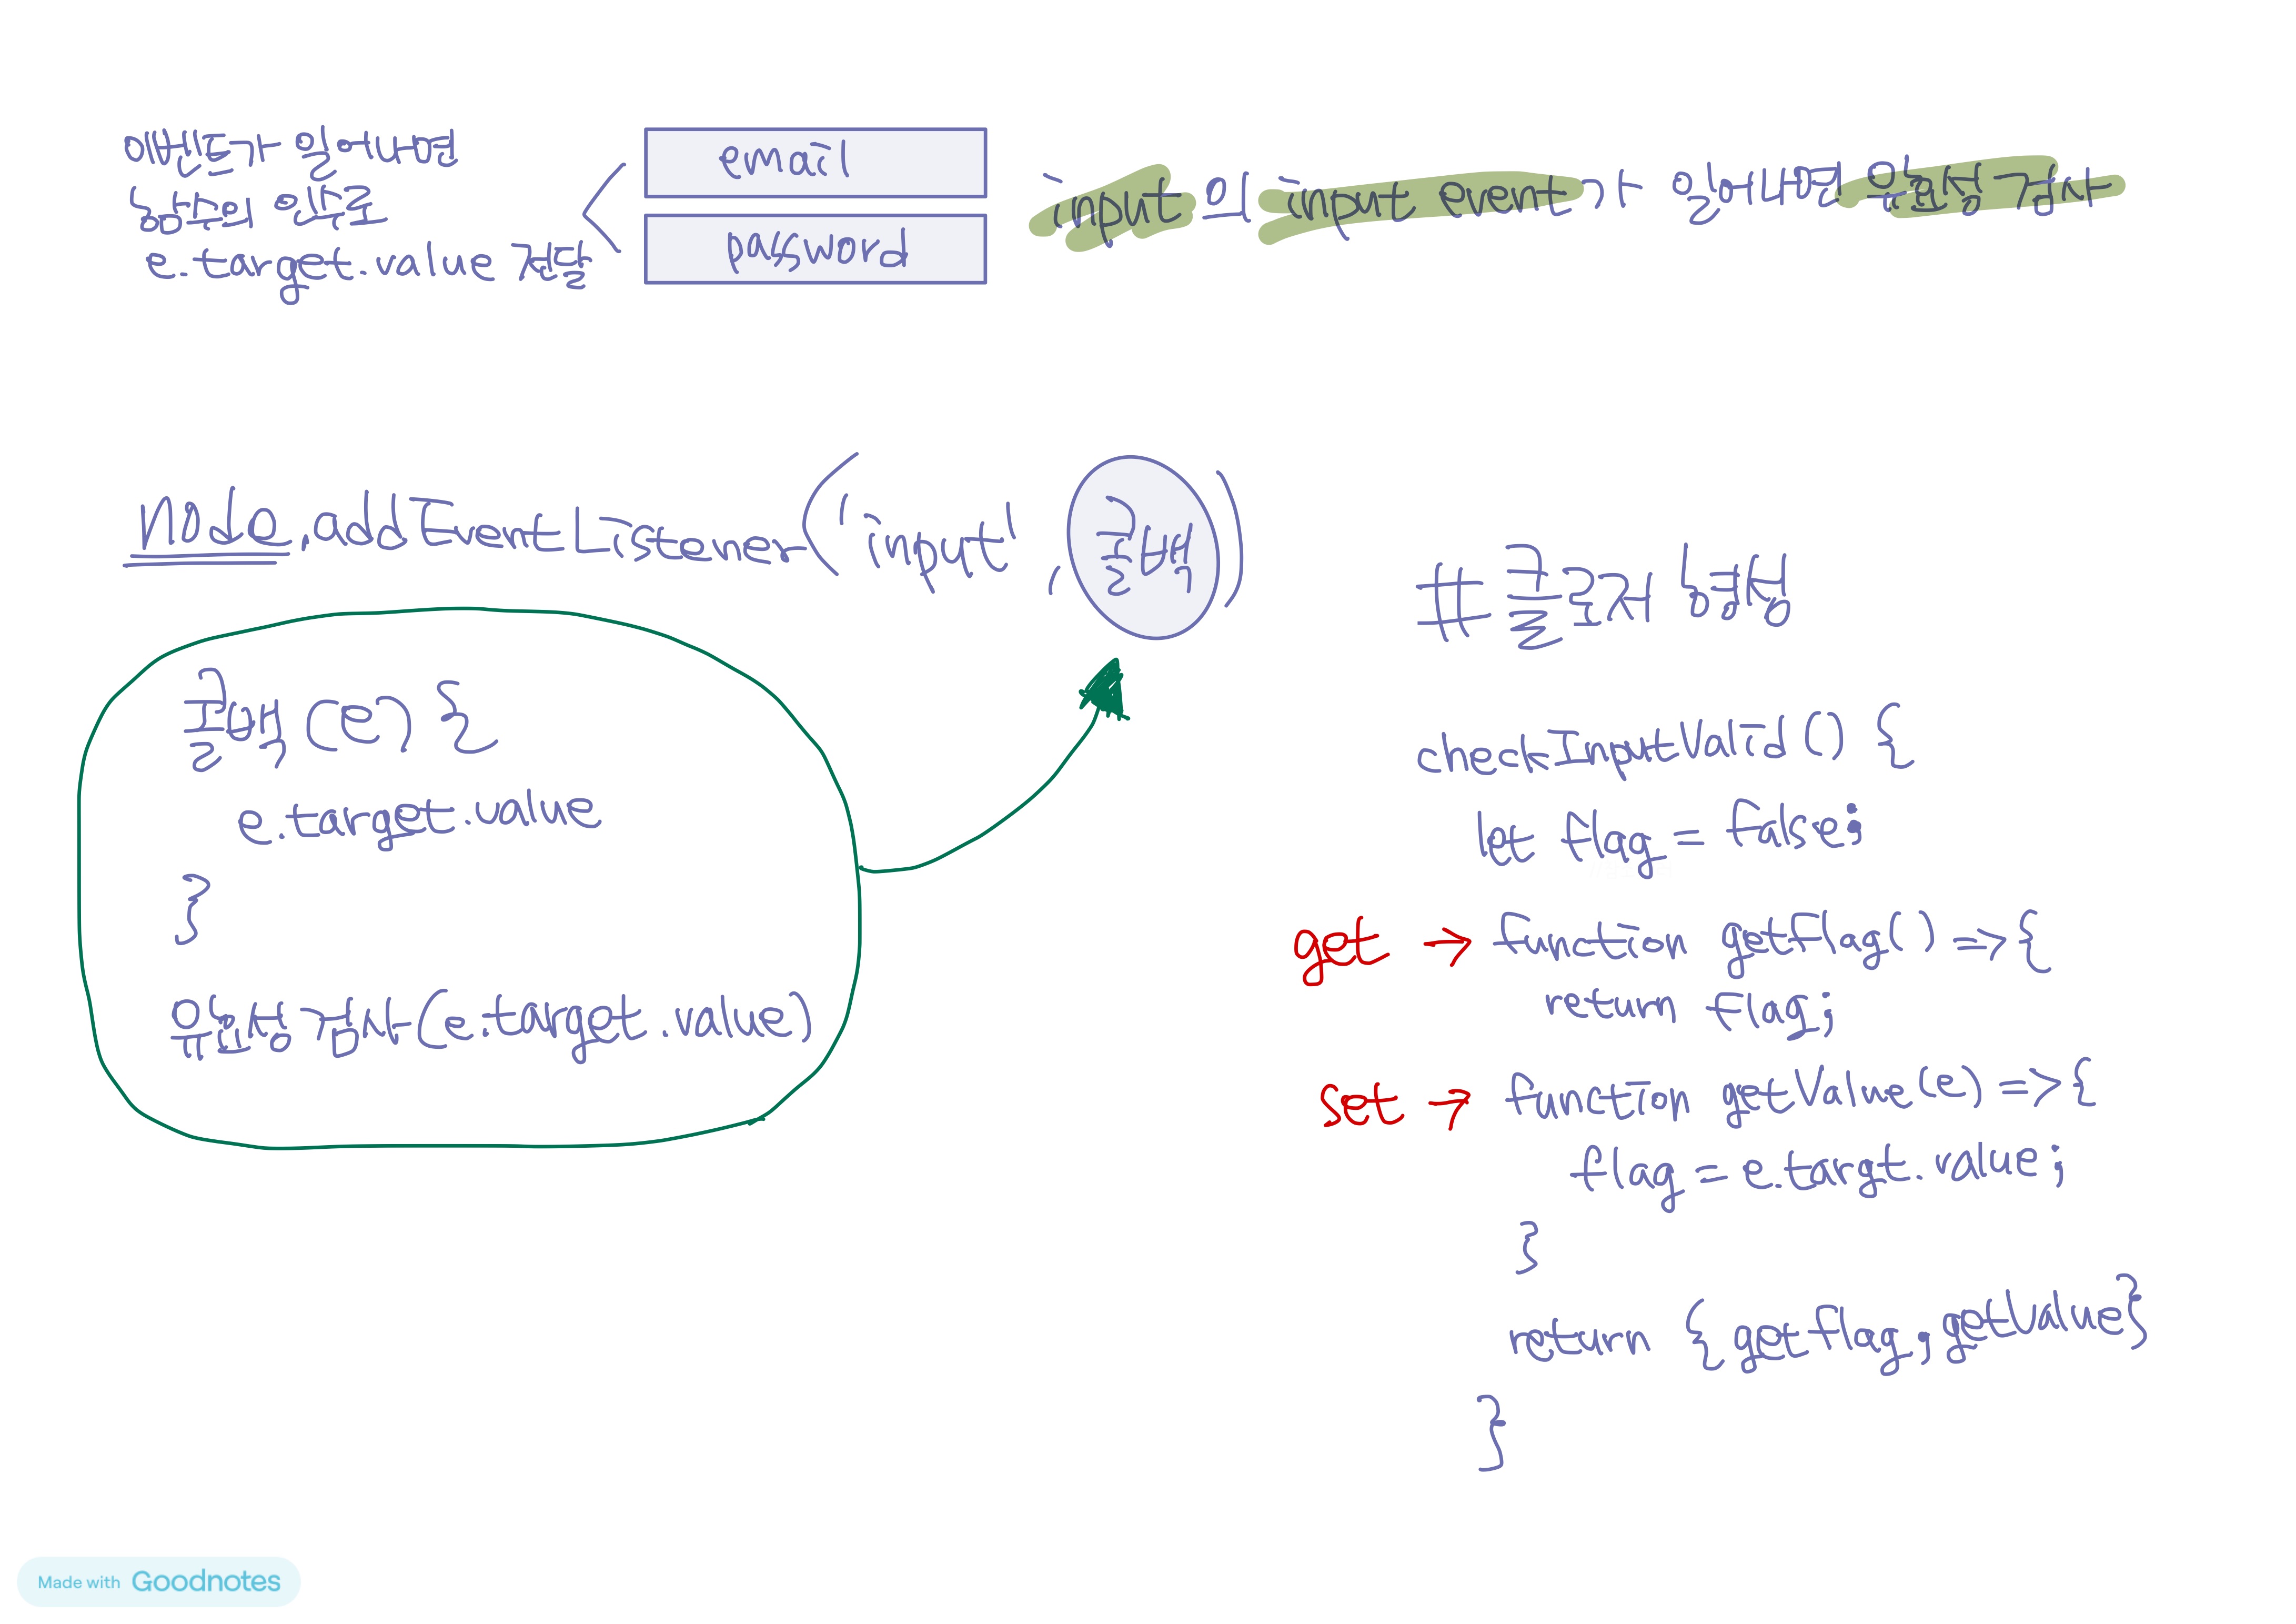 이벤트가 일어나면
함수의 인자로
e.target.value 전달
email
password
input 에 input event가 일어나면 유효성 검사
Node.addEventListener('input', 콜백)
콜백(e) {
e.target.value
}
유효성 검사(e.target.value)
# 클로저 방식
checkInputValid() {
let flag = false;
get → function getFlag() => {
return flag;
set → function getValue(e) => {
flag = e.targt.value;
}
return {getFlag, getValue}
}
Made with Goodnotes